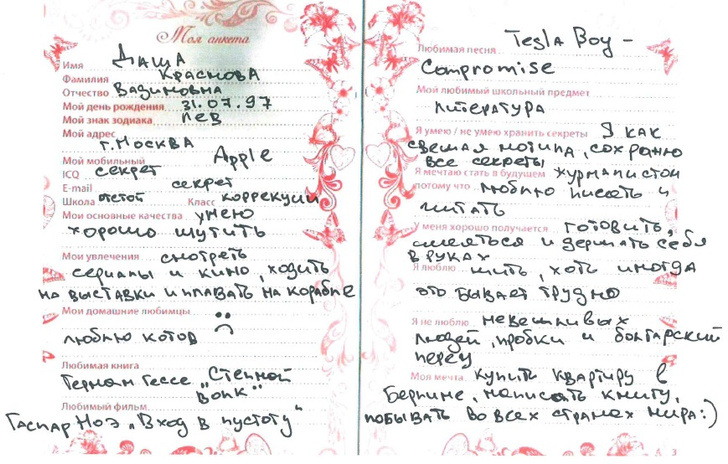 Моя анкета
Имя Даша
Фамилия Краснова
Отчество Вадимовна
Мой день рождения 31.07.97
Мой знак зодиака лев
Мой адрес
г. Москва
Мой мобильный Apple
ICQ секрет
E-mail секрет
Школа отстой Класс коррекции
Мои основные качества умею
хорошо шутить
Мои увлечения смотреть
сериалы и кино, ходить
на выставки и плавать на корабле
Мои домашние любимцы :(
люблю котов
Любимая книга
Герман Гессе „Степной
волк"
Любимый фильм
Гаспар Ноэ „Вход в пустоту"
Любимая песня Tesla Boy -
Compromise
Мой любимый школьный предмет
литература
Я умею / не умею хранить секреты Я как
свежая могила, сохраню
все секреты
Я мечтаю стать в будущем журналистом
потому что люблю писать и
читать
У меня хорошо получается готовить,
смеяться и держать себя
в руках
Я люблю жить, хоть иногда
это бывает трудно
Я не люблю невежливых
людей, пробки и болгарский
перец
Моя мечта купить квартиру в
Берлине, написать книгу,
побывать во всех странах мира :)
3